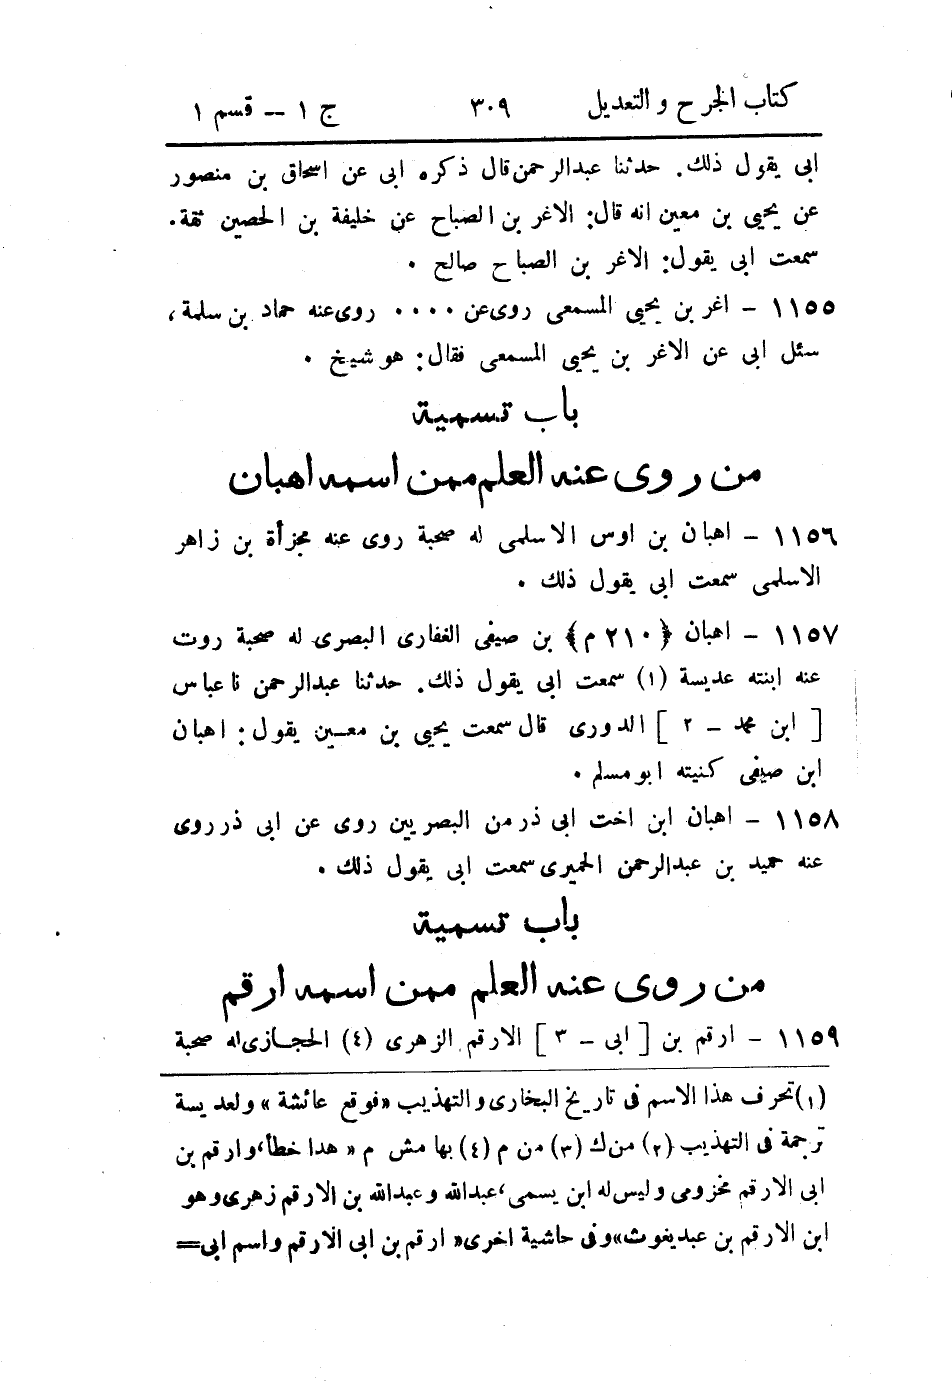 كتاب الجرح و التعديل ٣٠٩ ج ١ – قسم ١
ابى يقول ذلك. حدثنا عبدالرحمن قال ذكره ابى عن اسحاق بن منصور
عن يحيى بن معين انه قال: الاغر بن الصباح عن خليفة بن الحصين ثقة.
سمعت ابى يقول: الاغر بن الصباح صالح .
١١٥٥ - اغر بن يحيى المسمعى روى عن .... روى عنه حماد بن سلمة،
سئل ابى عن الاغر بن يحيى المسمعى فقال: هو شيخ .
باب تسمية
من روى عنه العلم ممن اسمه اهبان
١١٥٦ - اهبان بن اوس الاسلمى له صحبة روى عنه مجزأة بن زاهر
الاسلمى سمعت ابى يقول ذلك .
١١٥٧ - اهبان ﴿٢١٠ م﴾ بن صيفى الغفارى البصرى له صحبة روت
عنه ابنته عديسة (١) سمعت ابى يقول ذلك. حدثنا عبدالرحمن نا عباس
[ ابن محمد - ٢ ] الدورى قال سمعت يحيى بن معين يقول: اهبان
ابن صيفى كنيته ابو مسلم .
١١٥٨ - اهبان ابن اخت ابى ذر من البصريين روى عن ابى ذر روى
عنه حميد بن عبدالرحمن الحميرى سمعت ابى يقول ذلك .
باب تسمية
من روى عنه العلم ممن اسمه ارقم
١١٥٩ - ارقم بن [ ابى - ٣ ] الارقم الزهرى (٤) الحجازى له صحبة
(١) تحرف هذا الاسم فى تاريخ البخارى والتهذيب «فوقع عائشة» ولعديسة
ترجمة فى التهذيب (٢) من ك (٣) من م (٤) بهامش م «هذا خطأ، وارقم بن
ابى الارقم مخزومى وليس له ابن يسمى، عبدالله وعبدالله بن الارقم زهرى وهو
ابن الارقم بن عبد يغوث» وفى حاشية اخرى «ارقم بن ابى الارقم واسم ابى =